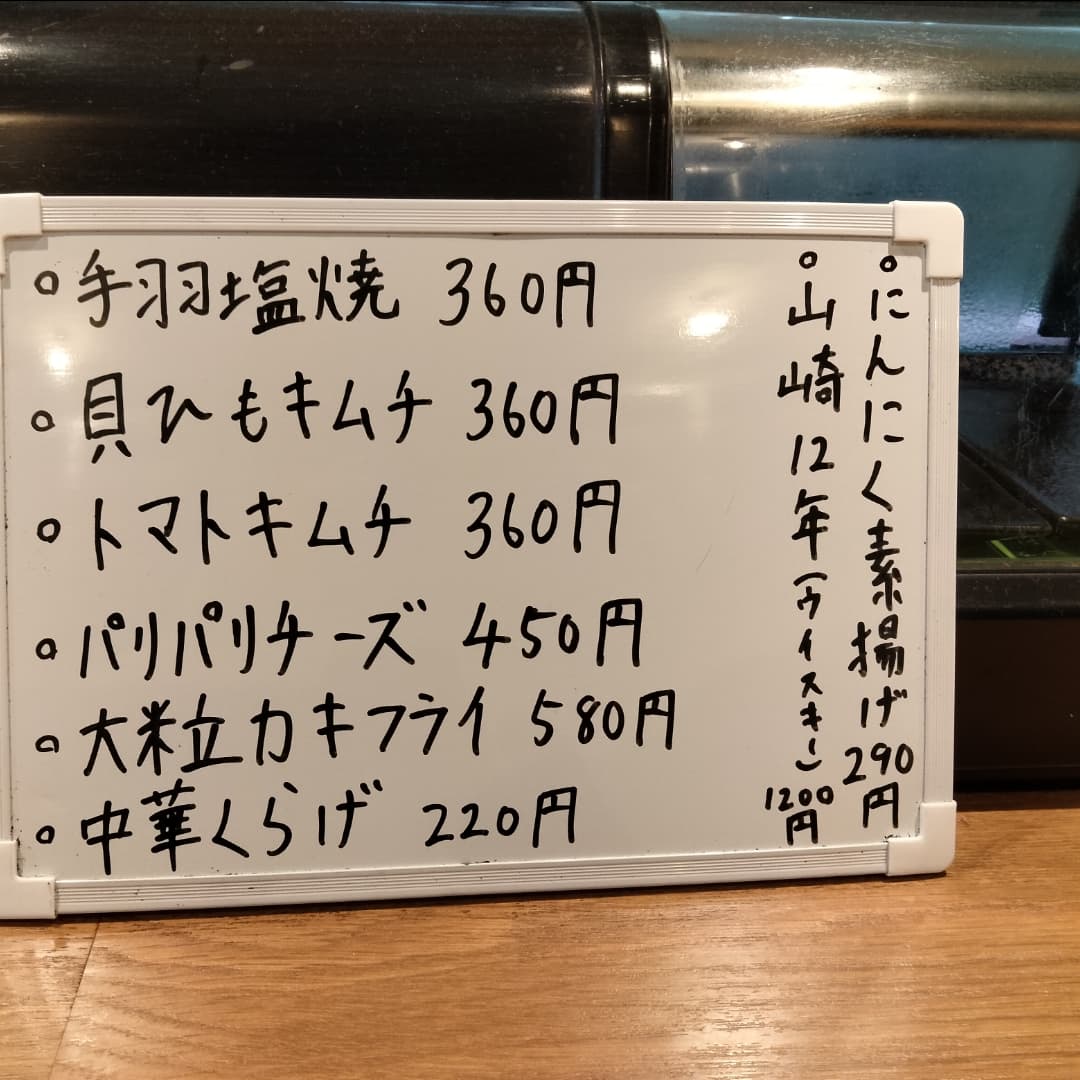 ◦手羽塩焼 360円
◦貝ひもキムチ 360円
◦トマトキムチ 360円
◦パリパリチーズ 450円
◦大粒カキフライ 580円
◦中華くらげ 220円
◦にんにく素揚げ 290円
◦山崎12年(ウイスキー) 1200円